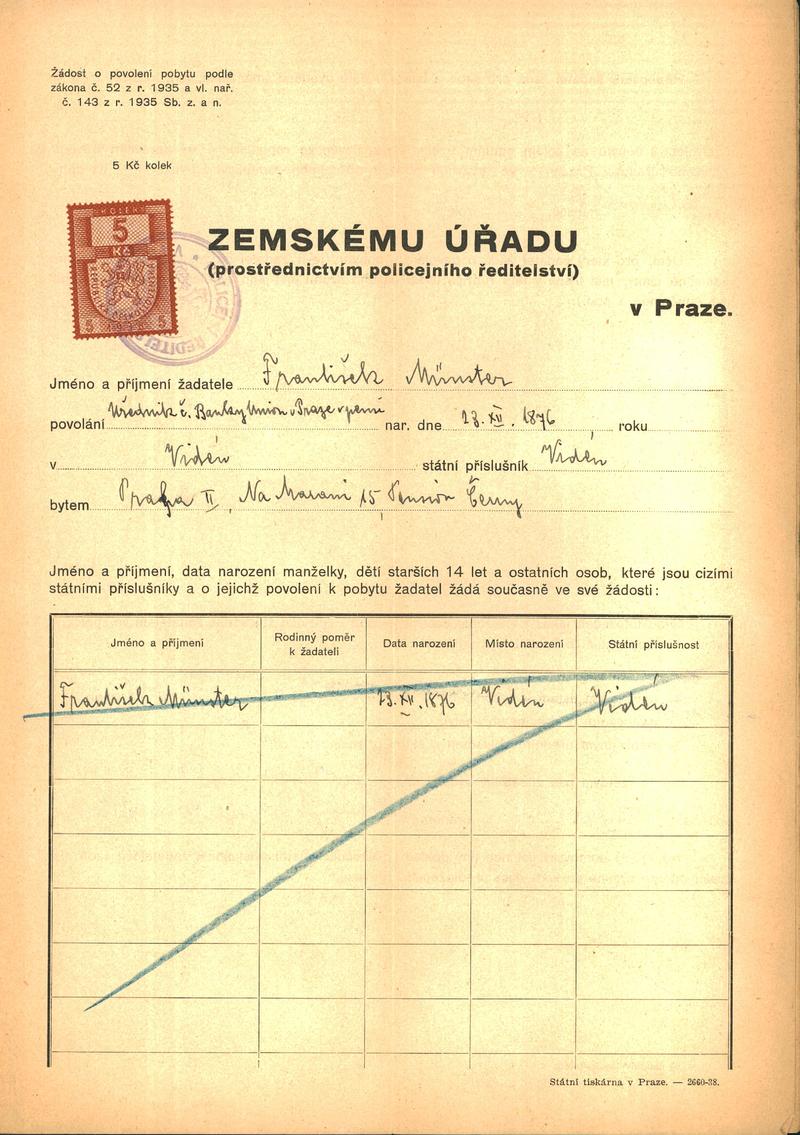 Žádost o povolení pobytu podle
zákona č. 52 z r. 1935 a vl. nař.
č. 143 z r. 1935 Sb. z. a n.
5 Kč kolek
KOLEK
5
Kč
5 5
ZEMSKÉMU ÚŘADU
(prostřednictvím policejního ředitelství)
v Praze.
Jméno a příjmení žadatele František Münster
povolání Úředník č. Banky Union v Praze v pensi nar. dne 23. XII. 1876 roku
v Vídeň státní příslušník Vídeň
bytem Praha II, Na Moráni 15 Pension Černy
Jméno a příjmení, data narození manželky, dětí starších 14 let a ostatních osob, které jsou cizími
státními příslušníky a o jejichž povolení k pobytu žadatel žádá současně ve své žádosti:
Jméno a příjmení Rodinný poměr k žadateli Data narození Místo narození Státní příslušnost
František Münster 23. XII. 1876 Vídeň Vídeň
Státní tiskárna v Praze. — 2660-38.